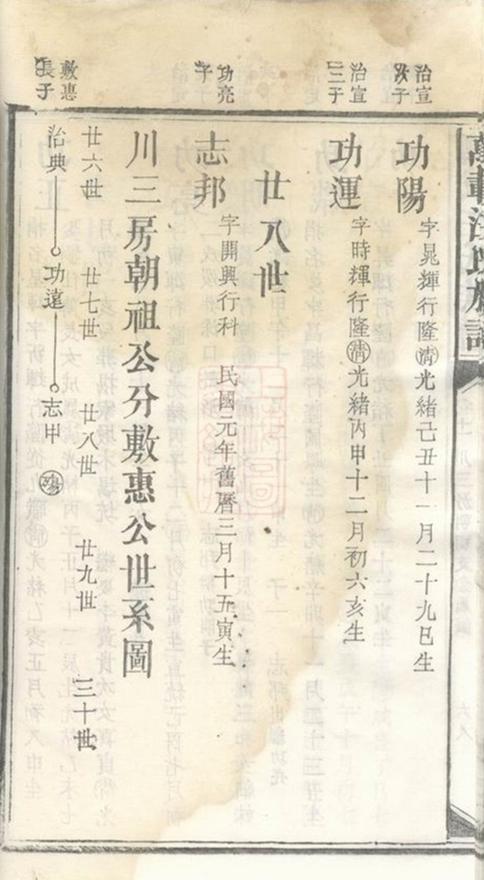 治宣次子
功陽 字晁輝行隆清光緒己丑十一月二十九巳生
治宣三子
功運 字時輝行隆清光緒丙申十二月初六亥生
廿八世
功亮子
志邦 字開興行科 民國元年舊曆三月十五寅生
川三房朝祖公分敷惠公世系圖
廿六世 廿七世 廿八世 廿九世 三十世
敷惠長子
治典 功遠 志申 殤